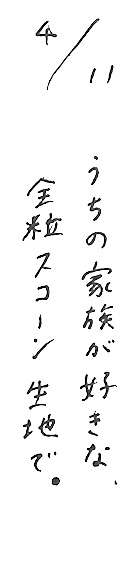 4/11
うちの家族が好きな、
全粒スコーン生地で。